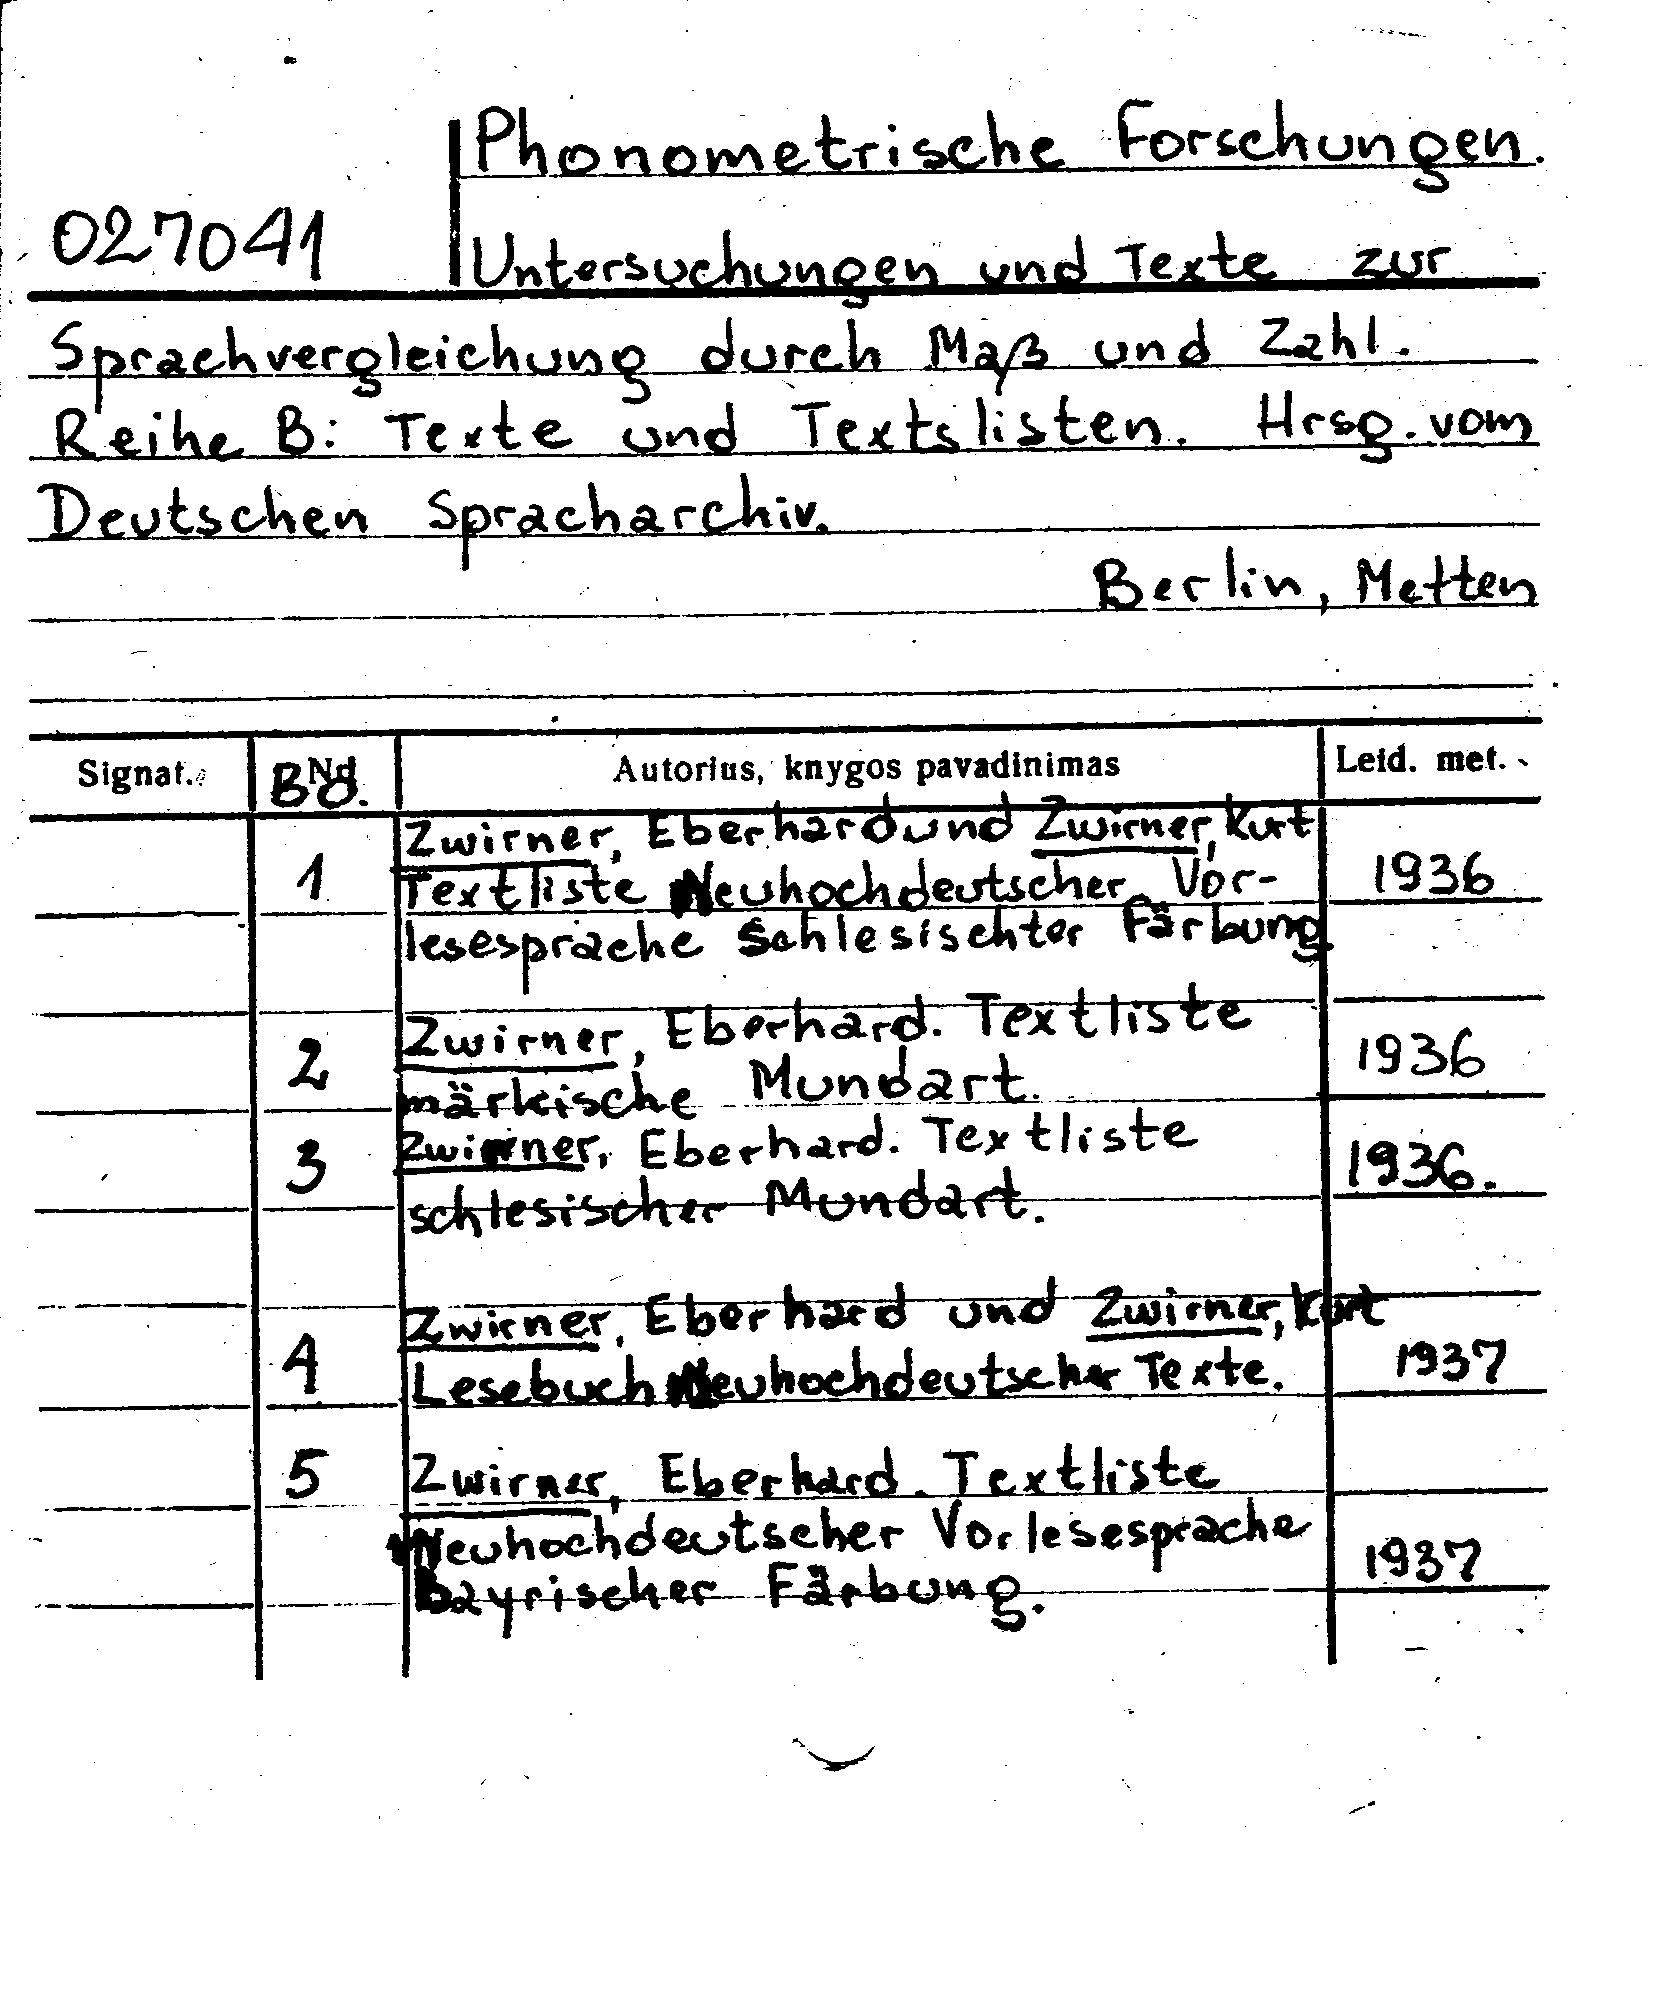 Phonometrische Forschungen.
027041
Untersuchungen und Texte zur
Sprachvergleichung durch Maß und Zahl.
Reihe B: Texte und Textslisten. Hrsg. vom
Deutschen Spracharchiv.
Berlin, Metten
Signat. Bd. Autorius, knygos pavadinimas Leid. met.
Zwirner, Eberhard und Zwirner, Kurt
1 Textliste Neuhochdeutscher Vor- 1936
lesesprache Schlesischter Färbung
Zwirner, Eberhard. Textliste
2 märkische Mundart. 1936
3 Zwirner, Eberhard. Textliste 1936.
schlesischer Mundart.
Zwirner, Eberhard und Zwirner, Kurt
4 Lesebuch Neuhochdeutscher Texte. 1937
5 Zwirner, Eberhard. Textliste
Neuhochdeutscher Vorlesesprache
bayrischer Färbung. 1937